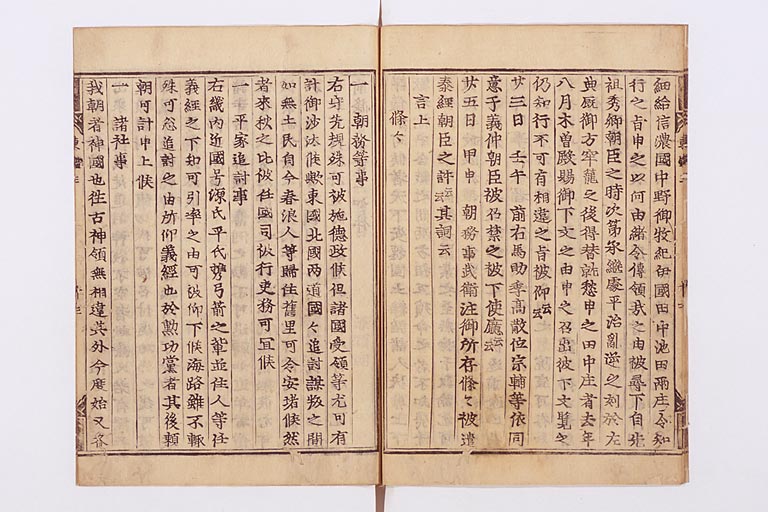 細給信濃國中野御牧紀伊國田中池田兩庄令知
行之旨申之以何由緒令傳領哉之由被尋下自先
祖秀郷朝臣之時次第承繼處平治亂逆之刻於左
典厩御方牢籠之後得替就愁申之田中庄者去年
八月木曽殿賜御下文之由申之召出彼下文覽之
仍知行不可有相違之旨被仰云云
廿三日 壬午 前右馬助季高散位宗輔等依同
意于義仲朝臣被召禁之被下使廳云云
廿五日 甲申 朝務事武衛注御所存條々被遣
泰經朝臣之許云云其詞云
言上
條々
一 朝務等事
右守先規殊可被施德政候但諸國受領等尤可有
計御沙汰候歟東國北國兩道國々追討謀叛之間
如無土民自今春浪人等歸住舊里可令安堵候然
者來秋之比被任國司被行吏務可宜候
一 平家追討事
右畿內近國号源氏平氏携弓箭之輩並住人等任
義經之下知可引率之由可被仰下候海路雖不輒
殊可忩追討之由所仰義經也於勲功黨者其後頼
朝可計申上候
一 諸社事
我朝者神國也往古神領無相違其外今度始又各